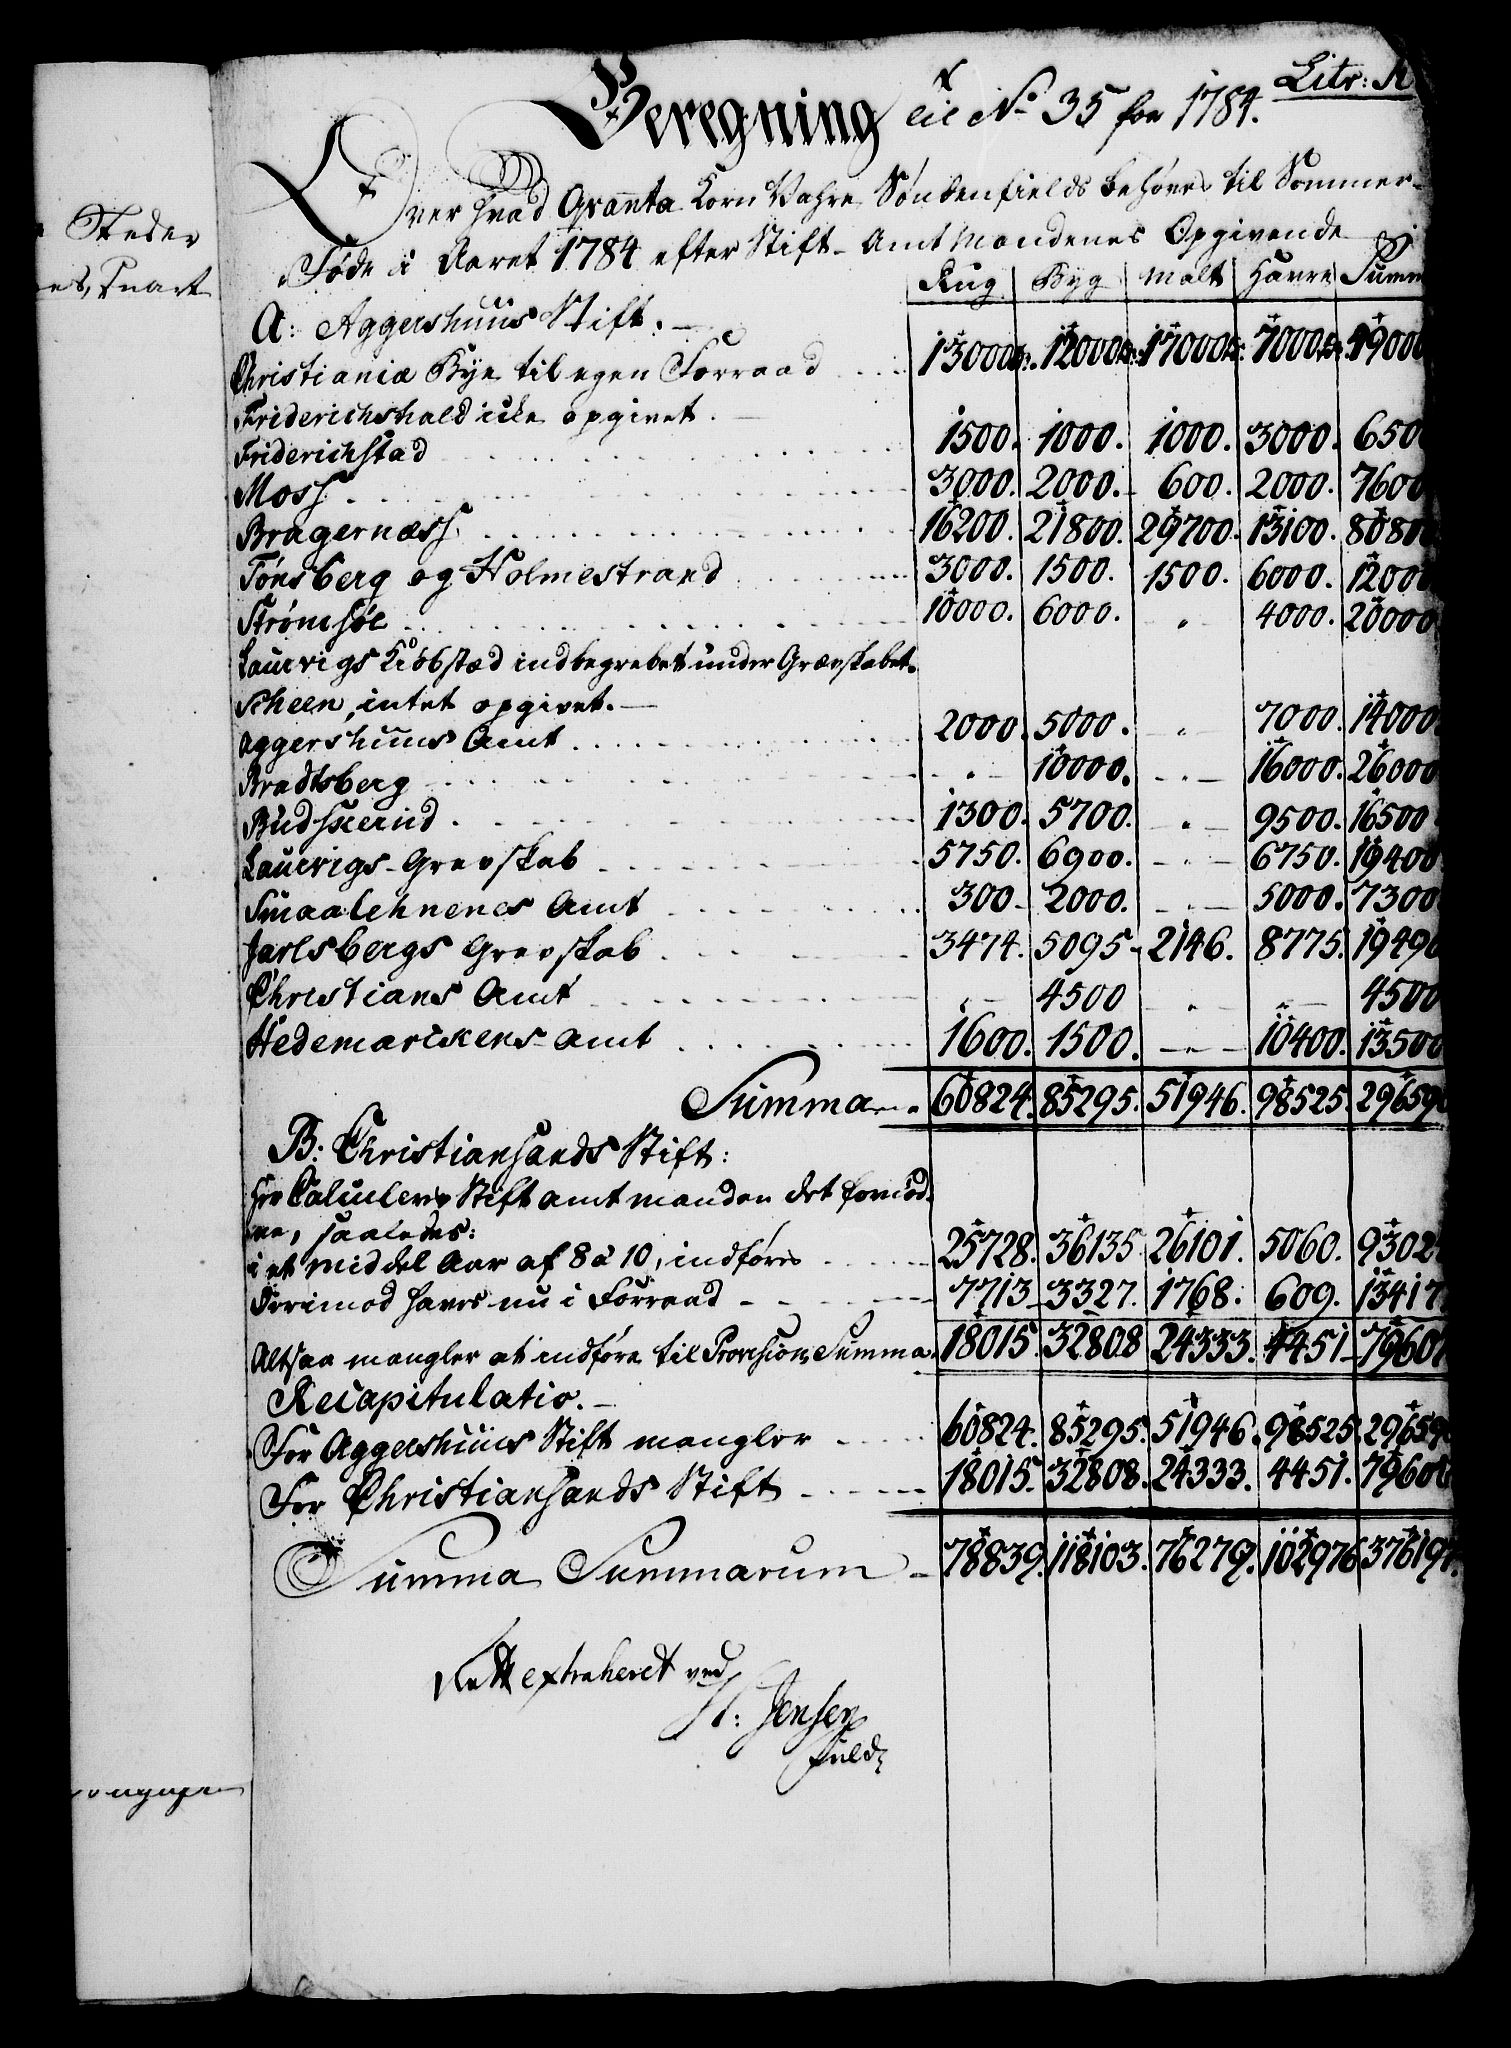 Litr: K
Beregning til No 35 for 1784.
Over hvad Qvanta Korn Vahre Søndenfields behøves til Sommer-
Føde i Aaret 1784 efter Stift-Amtmandenes Opgivende
Rug Byg Malt Havre Summ
A: Aggershuus Stift.
Christiania Bye til egen Forraad 13000 12000 17000 7000 49000
Friderichshald icke opgivet.
Friderichstad 1500. 1000. 1000. 3000. 6500
Moss 3000. 2000. 600. 2000. 7600
Bragernæss 16200. 21800. 29700. 13100. 80800
Tønsberg og Holmestrand 3000. 1500. 1500. 6000. 12000
Strømsøe 10000. 6000. " 4000. 20000
Laurvigs Kiøbstæd indbegrebet under Grævskabet.
Scheen, intet opgivet.
Aggershuus Amt 2000. 5000. " 7000. 14000
Bradtsberg " 10000. " 16000. 26000
Budskerud 1300. 5700. " 9500. 16500
Laurvigs-Grevskab 5750. 6900. " 6750. 19400
Smaalehnenes Amt 300 2000. " 5000. 7300
Jarlsbergs Grevskab 3474. 5095 2146. 8775. 19490
Christians Amt " 4500 " " 4500
Hedemarckens Amt 1600. 1500. " 10400. 13500
Summa 60824. 85295. 51946. 98525. 29659
B: Christiansands Stift:
her Calculerer Stiftamtmanden det fornød-
ne, saaledes:
i et middel Aar af 8 à 10, indføres 25728. 36135 26101. 5060. 9302
Derimod haves nu i Forraad 7713 3327. 1768. 609. 13417
Altsaa mangler at indføre til Provision Summa 18015. 32808 24333. 4451 7960
Recapitulatio.
For Aggershuus Stift mangler 60824. 85295. 51946. 98525 29659
For Christiansands Stift 18015. 32808. 24333. 4451. 7960
Summa Summarum 78839. 118103. 76279. 102976 376197.
Rett extraheret ved
H: Jensen
Fuldm
Steder